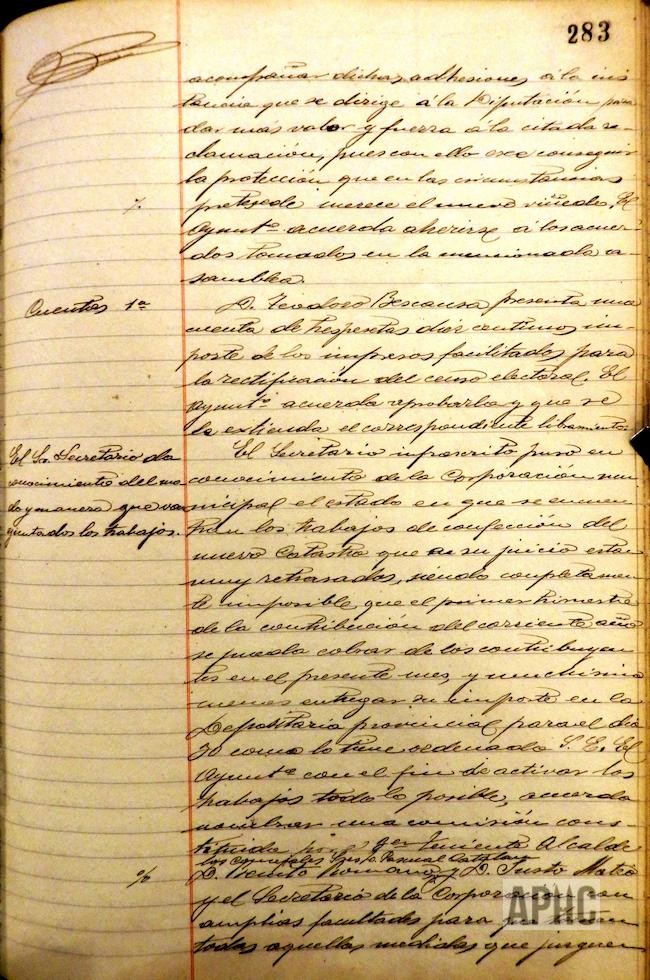 283
acompañar dichas adhesiones á la ins
tancia que se dirige á la Diputación para
dar más valor y fuerza á la citada re-
clamación, pues con ello cree conseguir
la protección que en las circunstancias
merece el nuevo viñedo. El
Ayuntº acuerda aherirse á los acuer-
dos tomados en la mencionada a-
samblea.
Cuentas 1ª
D. Teodoro Bescansa presenta una
cuenta de pesetas diez centimos im-
porte de los impresos facilitados para
la rectificación del censo electoral. El
Ayuntº acuerda aprobarla y que se
le extienda el correspondiente libramiento
El Sr. Secretario da
conocimiento del mo
do y manera que van
los trabajos.
El Secretario infrascrito puso en
conocimiento de la Corporación mu
nicipal el estado en que se encuen
tran los trabajos de confección del
nuevo Catastro que a su juicio están
muy retrasados, siendo completamen
te imposible que el primer trimestre
de la contribución del corriente año
se pueda cobrar de los contribuyen
tes en el presente mes, y muchisimo
menos entregar su importe en la
Depositaria provincial para el dia
30 como lo tiene ordenado S. E. El
Ayuntº con el fin de activar los
trabajos todo lo posible, acuerda
nombrar una comisión cons
tituida por el 1er Teniente Alcalde
los Concejales Pascual Catalan
D. Benito Romano y D. Justo Mateo
y el Secretario de la Corporacion con
amplias facultades para que tomen
todas aquellas medidas que juzguen
APHC